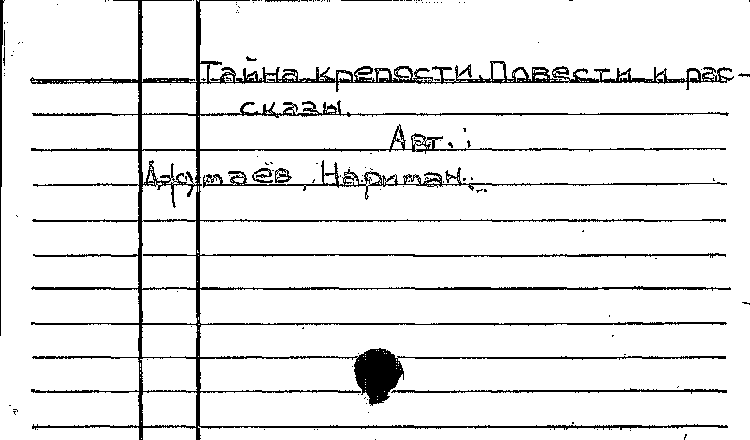 Тайна крепости. Повести и рас-
сказы.
Авт.:
Джумаев, Нариман.